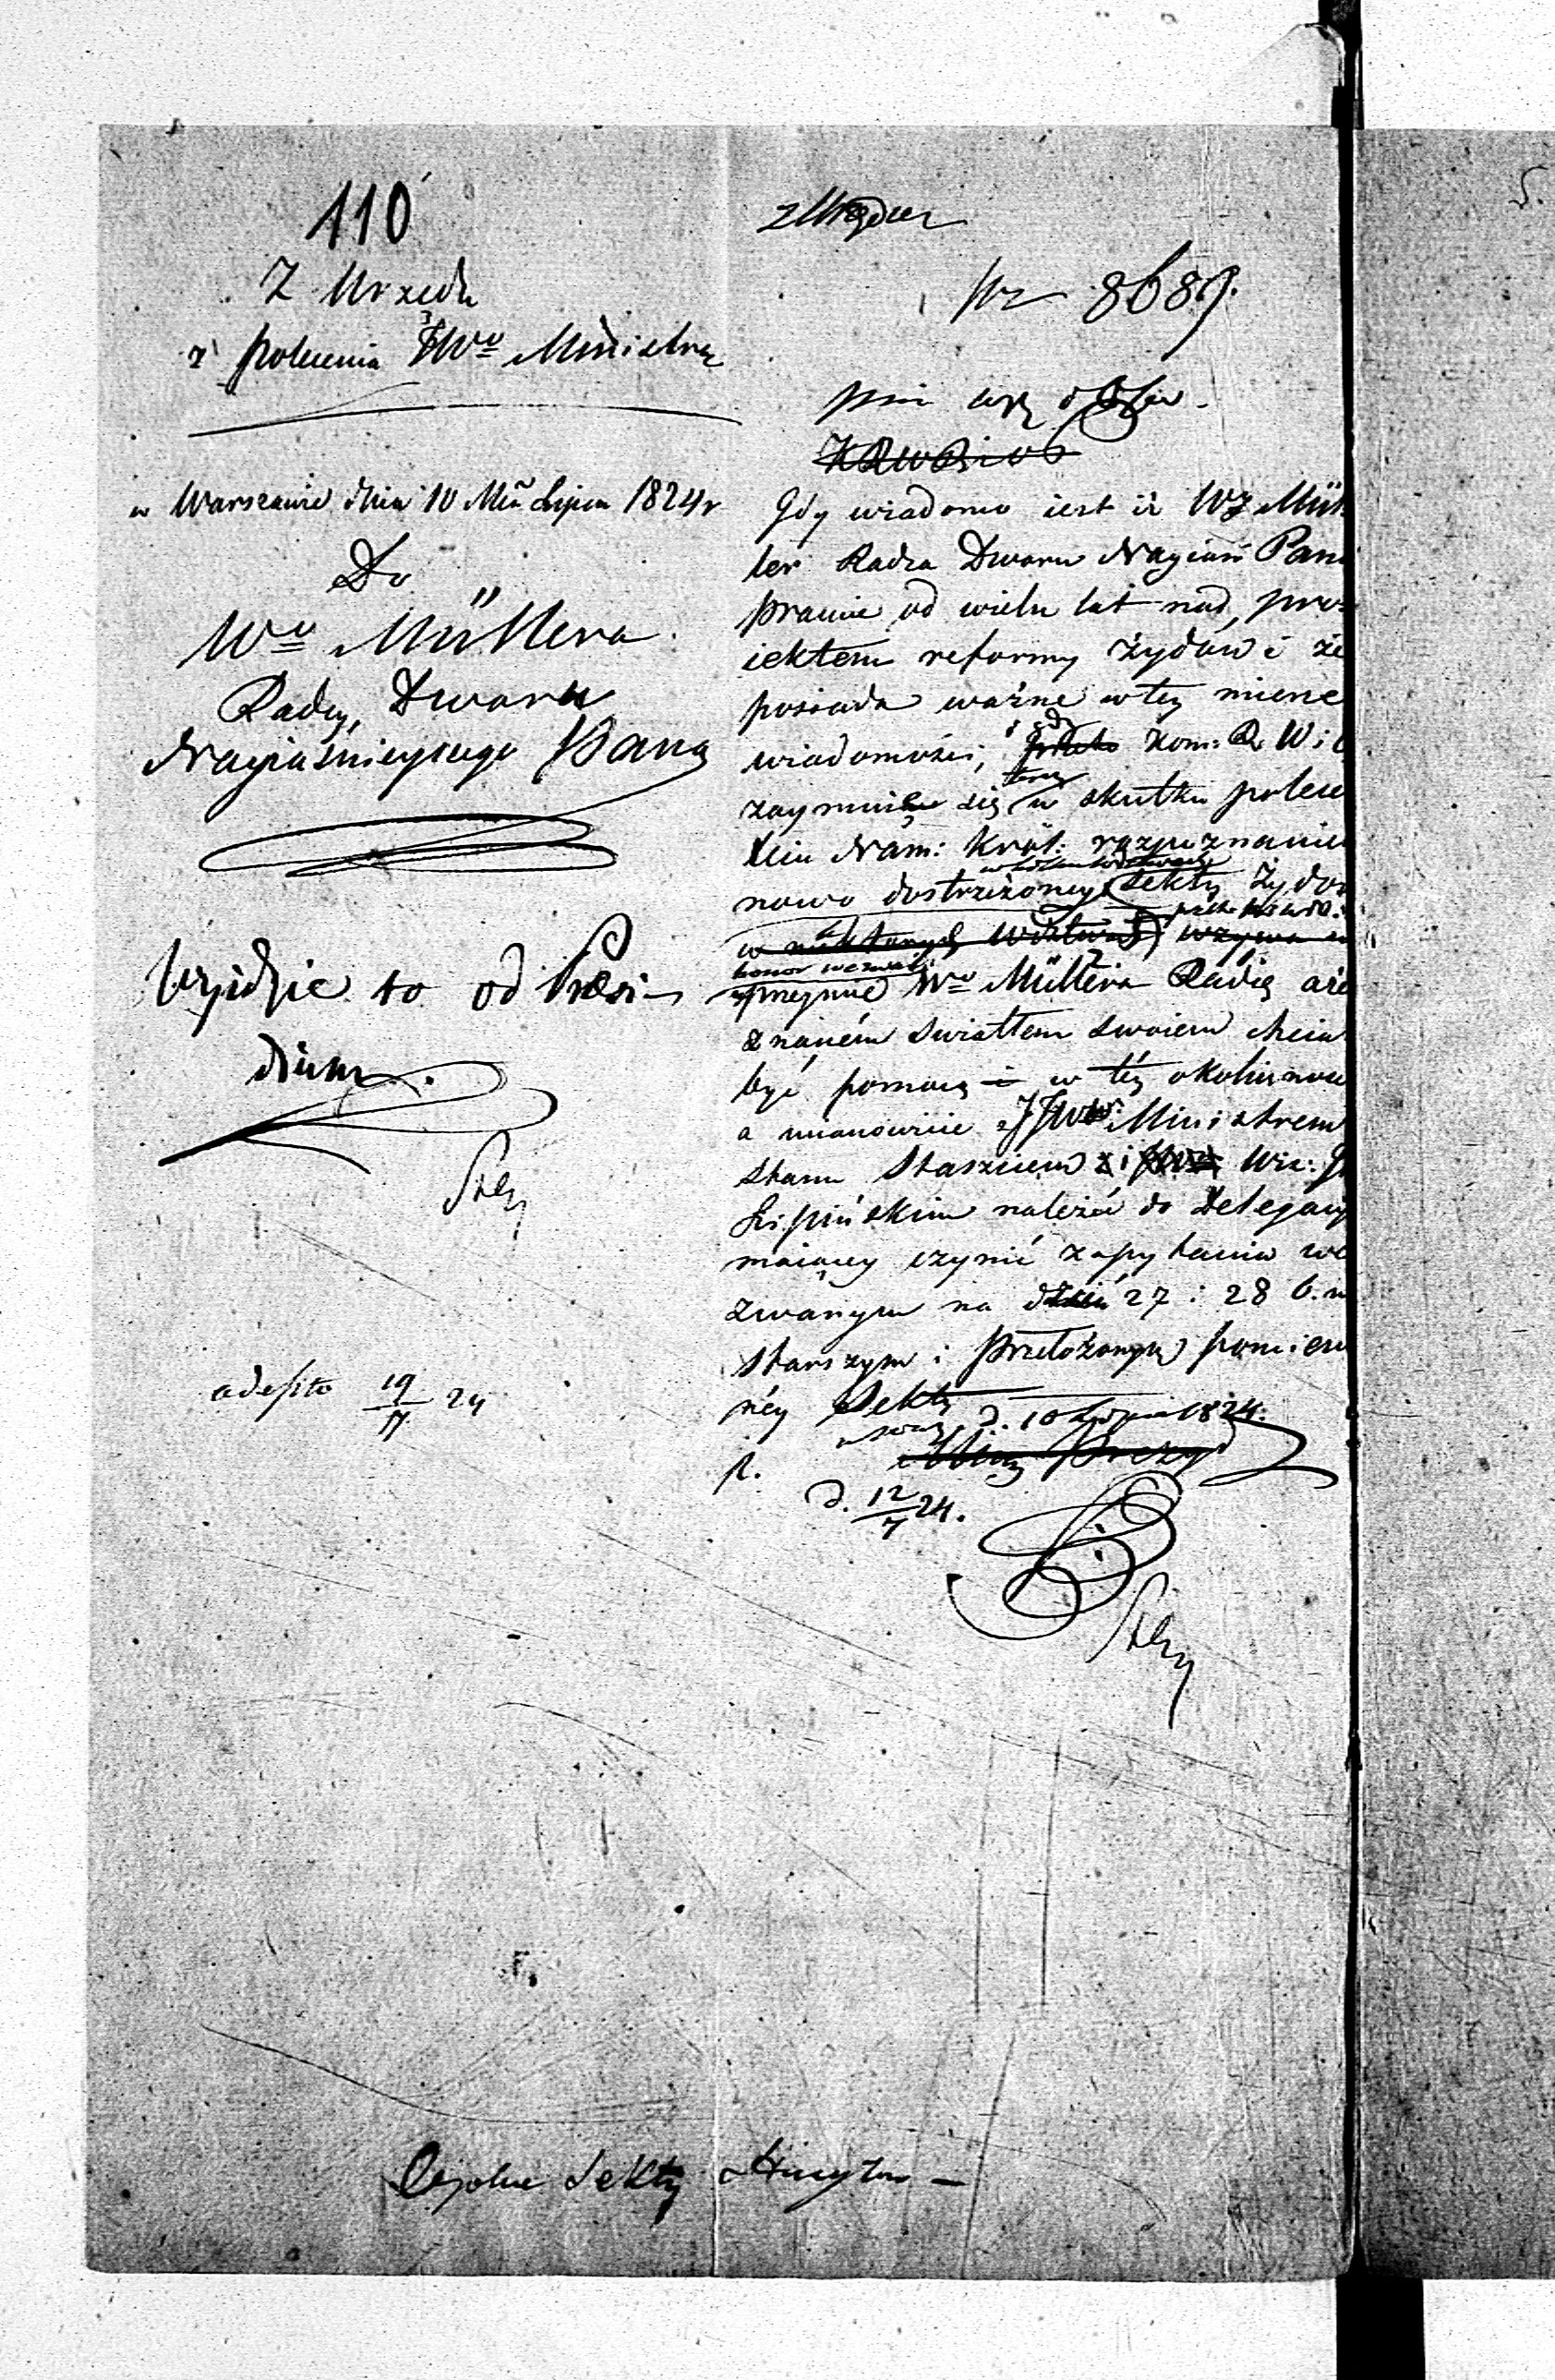 110
Z Urzędu
z polecenia JWo Ministra
w Warszawie dnia 10 Mca Lipca 1824 r
Do
Wo Müllera
Radcy Dworu
Nayjaśnieyszego Pana
Wyidzie to od Prezi-
dium
adepto 19/7 24
z Urzędu
Nr 8689.
Gdy wiadomo iest iż WJ Mül
ler Radca Dworu Nayjaś Pan
pracuie od wielu lat nad pro
iektem reformy Żydów i że
posiada ważne w tey mierze
wiadomości, gdy Kom: R. W i
zaymuie się teraz w skutku polece
nia Nam: Król: rozpoznanie
nowo dostrzeżoney sekty Żydo
w niektórych wzywa
honor wezwać
uprzeymie Wo Müllera Radcę aże
znaném światłem swoiem chciał
być pomocą w téy okoliczno
a mianowicie z JWW Ministrem
Stanu Staszicem i
Lipińskim należeć do Delegacyi
maiącey czynić zapytania we
zwanym na dzień 27 i 28 b. m
Starszym i Przełożonym pomien
néy Sekty
d. 10 Lipca 1824.
Prezyd
d. 12/7 24.
sekty